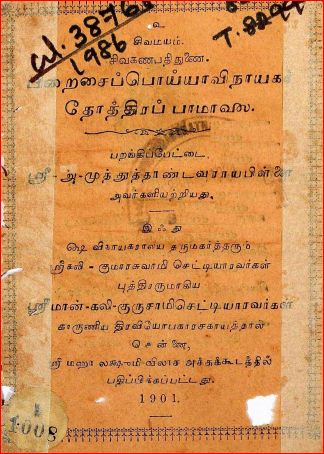 W. 38763
1986
T. 8294
உ
சிவமயம்.
சிவகணபதி துணை.
பிறைசைப்பொய்யாவிநாயக
தோத்திரப் பாமாலை.
பறங்கிப்பேட்டை,
ஸ்ரீ-அ-முத்துத்தாண்டவராயபிள்ளை
அவர்களியற்றியது.
இஃது
ஷெ விநாயகராலய தருமகர்த்தரும்
ஸ்ரீகலி - குமாரசுவாமி செட்டியாரவர்கள்
புத்திரருமாகிய
ஸ்ரீமான்-கலி-குருசாமிசெட்டியாரவர்கள்
காருணிய திரவியோபகாரசகாயத்தால்
சென்னை,
ஸ்ரீ மஹா லக்ஷுமி-விலாச அச்சுக்கூடத்தில்
பதிப்பிக்கப்பட்டது.
1901.
1
1008